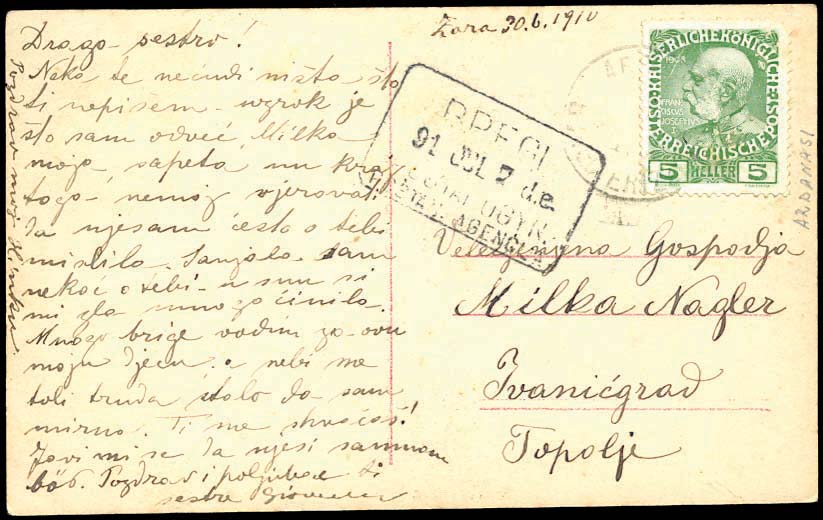 Zara 30.6.1910
Drago sestro!
Neka te nečudi ništa što
ti nepišem uzrok je
što sam odveć, Milka
moja, sapeta, nu kraj
toga nemoj vjerovat
da njesam često o tebi
mislila. Sanjala sam
nekoć o tebi u snu si
mi zla mnogo činila.
Mnogo brige vodim za ovu
moju djecu. a nebi me
toli truda stolo da sam
mirna. Ti me shvaćaš!
Javi mi se da njesi samnom
böš. Pozdrav i poljubac ti
sestra
Pozdrav moj
KAISERLICHE KÖNIGLICHE
ÖSTERREICHISCHE POST
1908
FRANCISCUS JOSEPHUS I
5 HELLER 5
91 JUL 7 d.e.
AGENCIJA
ARBANASI
Velecijenjena Gospodja
Milka Nagler
Ivanićgrad
Topolje